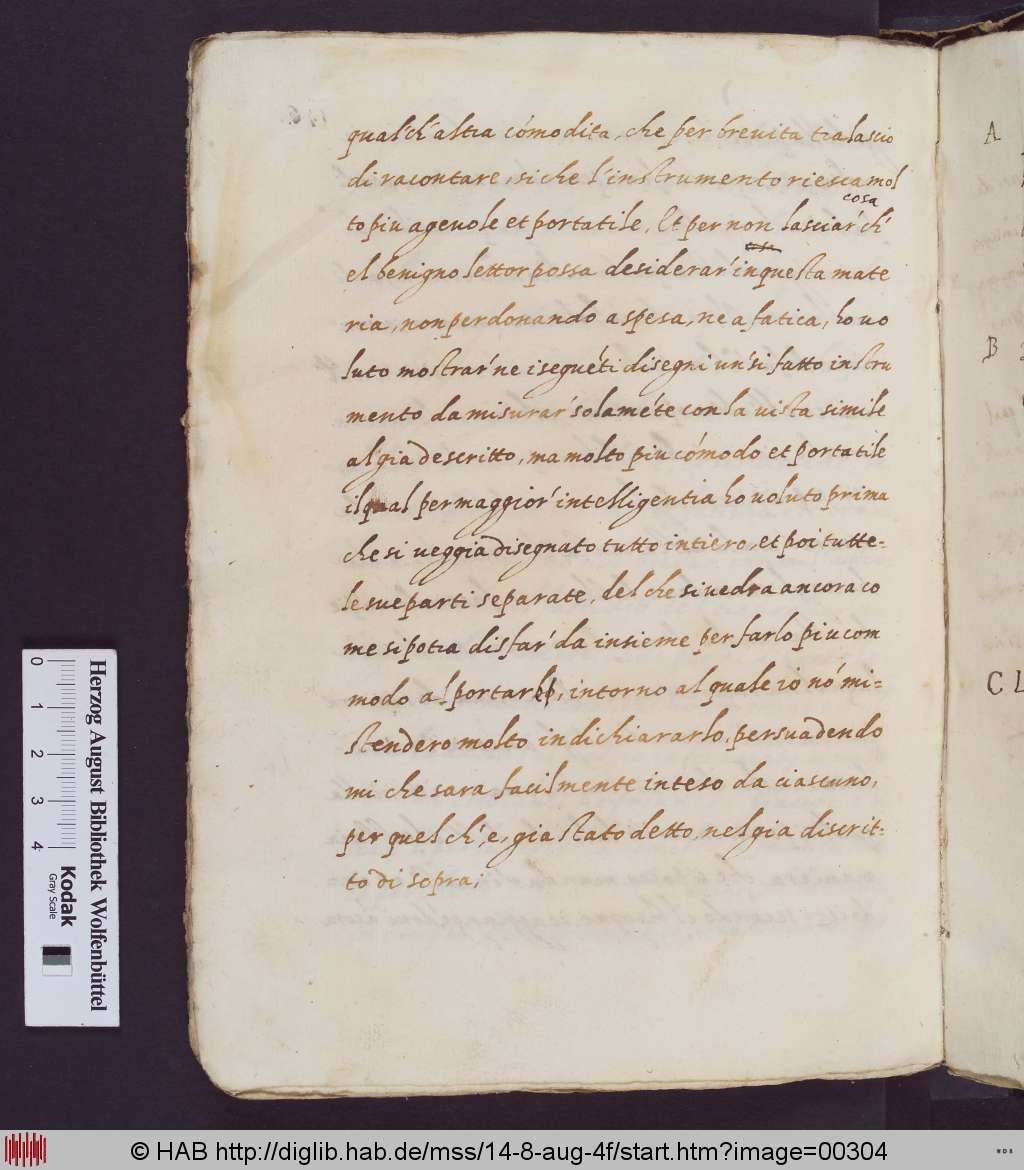 qual'ch' altra cómodita, che per brevita tralascio
di racontare, siche l'instrumento riesca mol
cosa
to piu agevole et portatile, Et per non lasciar' ch'
el benigno lettor possa desiderar' in questa mate
ria, non perdonando a spesa, ne a fatica, ho uo
luto mostrar' ne i seguéti disegni un' si fatto instru
mento da misurar' solaméte con la uista simile
al gia descritto, ma molto piu cómodo et portatile
il qual per maggior' intelligentia ho uoluto prima
che si ueggia disegnato tutto intiero, et poi tutte=
le sue parti separate, del che si uedra ancora co
me si potra disfar' da insieme per farlo piu com
modo al portarlo, intorno al quale io nó mi=
stendero molto in dichiararlo, persuadendo
mi che sara facilmente inteso da ciascuno,
per quel ch', e, gia stato detto, nel gia discrit=
to di sopra;
A
B
C L
Herzog August Bibliothek Wolfenbüttel
0 1 2 3 4
Kodak
Gray Scale
© HAB http://diglib.hab.de/mss/14-8-aug-4f/start.htm?image=00304